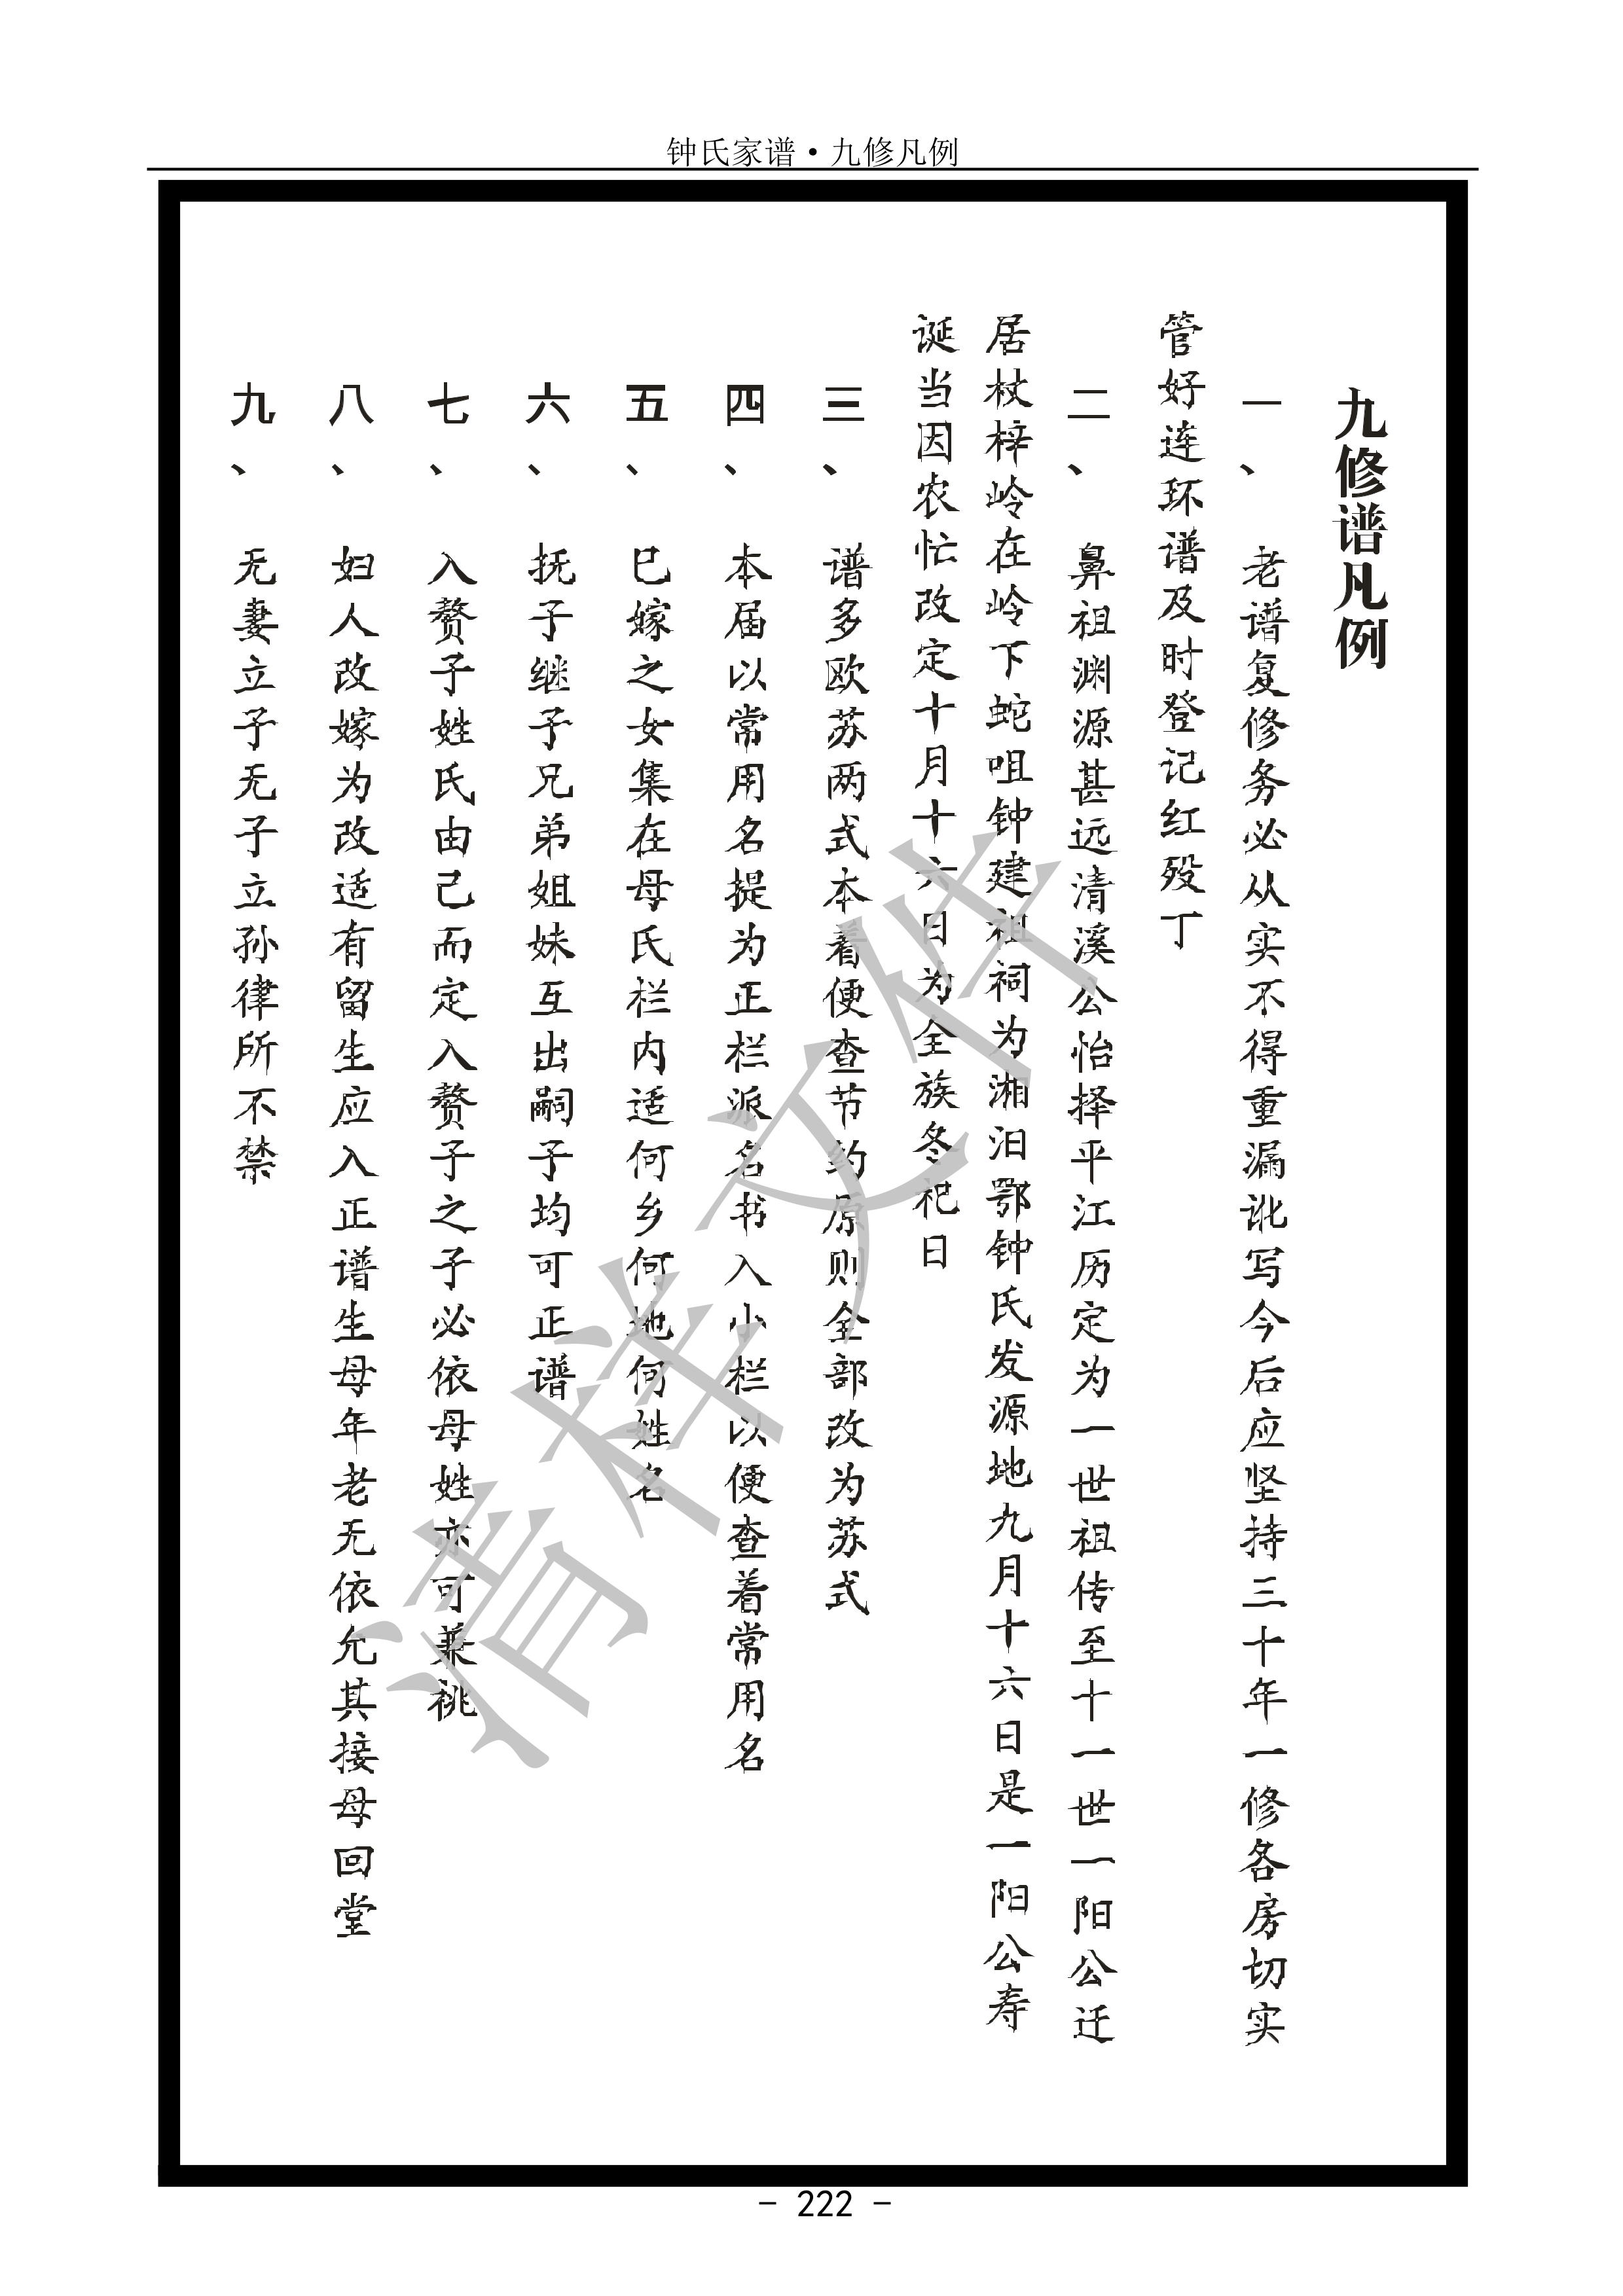 钟氏家谱·九修凡例
九修谱凡例
一、老谱复修务必从实不得重漏讹写今后应坚持三十年一修各房切实
管好连环谱及时登记红殁丁
二、鼻祖渊源甚远清溪公怡择平江历定为一世祖传至十一世一阳公迁
居杖梓岭在岭下蛇咀钟建祖祠为湘汨鄂钟氏发源地九月十六日是一阳公寿
诞当因农忙改定十月十六日为全族冬祀日
三、谱多欧苏两式本着便查节约原则全部改为苏式
四、本届以常用名提为正栏派名书入小栏以便查着常用名
五、已嫁之女集在母氏栏内适何乡何地何姓名
六、抚子继子兄弟姐妹互出嗣子均可正谱
七、入赘子姓氏由己而定入赘子之子必依母姓亦可兼祧
八、妇人改嫁为改适有留生应入正谱生母年老无依允其接母回堂
九、无妻立子无子立孙律所不禁
清样文件
- 222 -